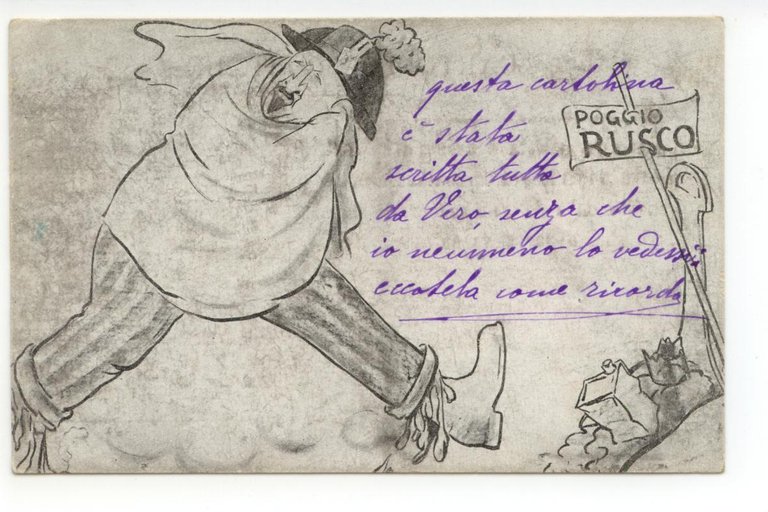 questa cartolina
è stata
scritta tutta
da Vero, senza che
io nemmeno lo vedessi:
eccotela come ricordo
POGGIO
RUSCO